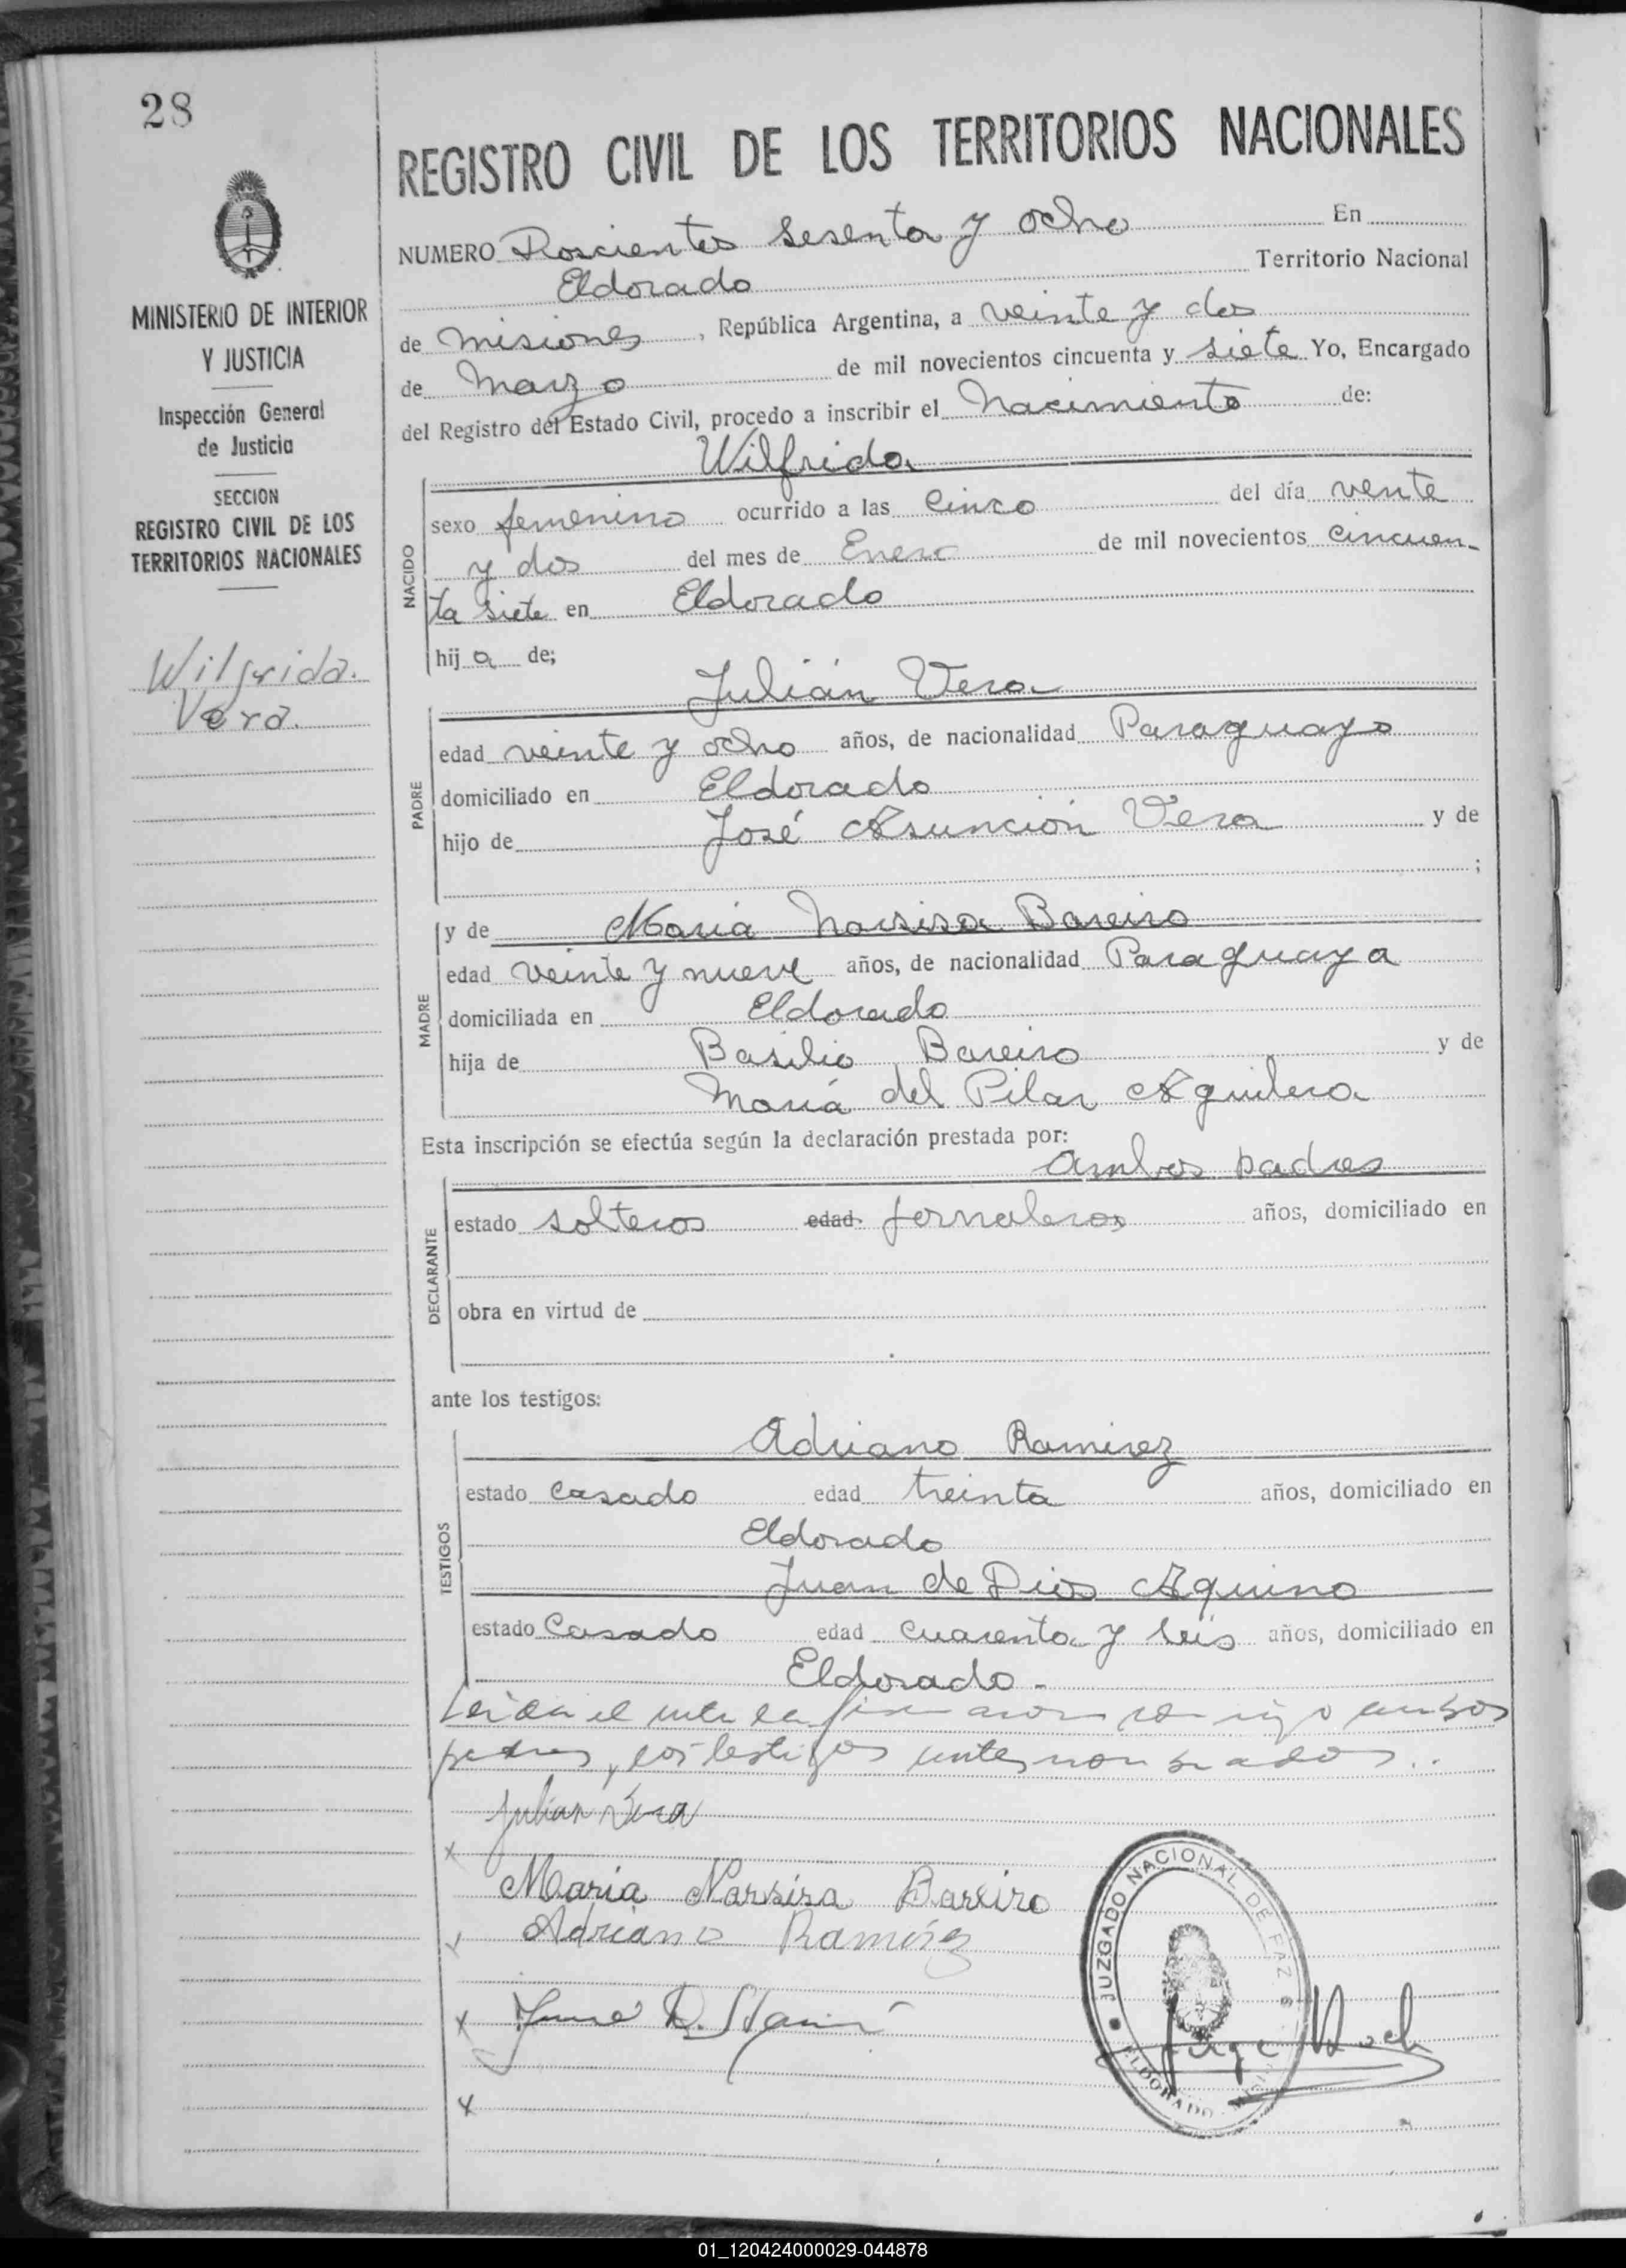 28
REGISTRO CIVIL DE LOS TERRITORIOS NACIONALES
MINISTERIO DE INTERIOR
Y JUSTICIA
Inspección General
de Justicia
SECCION
REGISTRO CIVIL DE LOS
TERRITORIOS NACIONALES
Wilfrida.
Vera.
NUMERO Doscientos sesenta y ocho En
Eldorado Territorio Nacional
de Misiones, República Argentina, a veinte y dos
de Marzo de mil novecientos cincuenta y siete Yo, Encargado
del Registro del Estado Civil, procedo a inscribir el Nacimiento de:
Wilfrida
NACIDO
sexo femenino ocurrido a las cinco del día vente
y dos del mes de Enero de mil novecientos cincuen-
ta siete en Eldorado
hij a de;
Julián Vera
PADRE
edad veinte y ocho años, de nacionalidad Paraguayo
domiciliado en Eldorado
hijo de José Asunción Vera y de
;
MADRE
y de María Narsisa Bareiro
edad veinte y nueve años, de nacionalidad Paraguaya
domiciliada en Eldorado
hija de Basilio Bareiro y de
María del Pilar Aguilera
Esta inscripción se efectúa según la declaración prestada por:
ambos padres
DECLARANTE
estado solteros edad jornaleros años, domiciliado en
obra en virtud de
ante los testigos:
TESTIGOS
Adriano Ramirez
estado casado edad treinta años, domiciliado en
Eldorado
Juan de Dios Aquino
estado Casado edad cuarenta y seis años, domiciliado en
Eldorado.-
Leida el acta la firmaron conmigo ambos
padres, los testigos antes nombrados..
Julian Vera
x
Maria Narsisa Bareiro
x Adriano Ramírez
x
x
JUZGADO NACIONAL DE PAZ
ELDORADO
Jorge
01_120424000029-044878